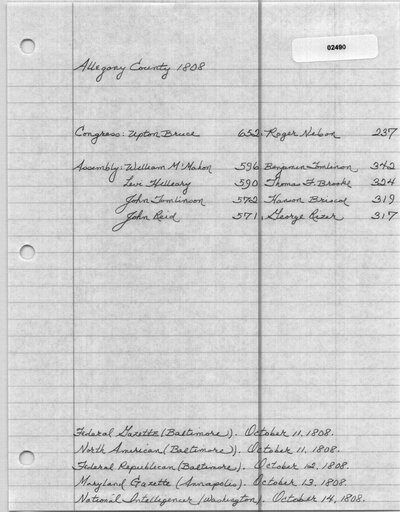 02490
Allegany County 1808
Congress: Upton Bruce 652. Roger Nelson 237
Assembly: William McMahon 596 Benjamin Tomlinson 342
Levi Hilleary 590 Thomas F. Brooke 324
John Tomlinson 572 Hanson Briscoe 319
John Reid 571. George Rizer 317
Federal Gazette (Baltimore). October 11, 1808.
North American (Baltimore). October 11, 1808.
Federal Republican (Baltimore). October 12, 1808.
Maryland Gazette (Annapolis). October 13, 1808.
National Intelligencer (Washington). October 14, 1808.